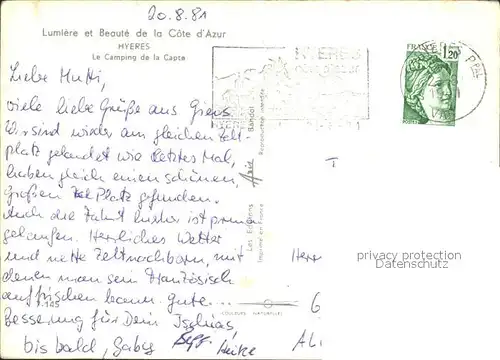 20.8.81
Lumière et Beauté de la Côte d'Azur
HYERES
Le Camping de la Capte
HYERES
1,20
Liebe Mutti,
viele liebe Grüße aus Giens.
Wir sind wieder am gleichen Zelt-
platz gelandet wie letztes Mal,
haben gleich einen schönen,
großen Platz gefunden.
Auch die Fahrt hierher ist prima
gelaufen. Herrliches Wetter
und nette Zeltnachbarn, mit
denen man sein Französisch
auffrischen kann. Gute
Besserung für Dein Ischias,
bis bald, Gaby
Heike
Y.145
Les Editions Aris Bandol
Imprimé en France Reproduction interdite
COULEURS NATURELLES
T
Herr
6
AL
privacy protection
Datenschutz